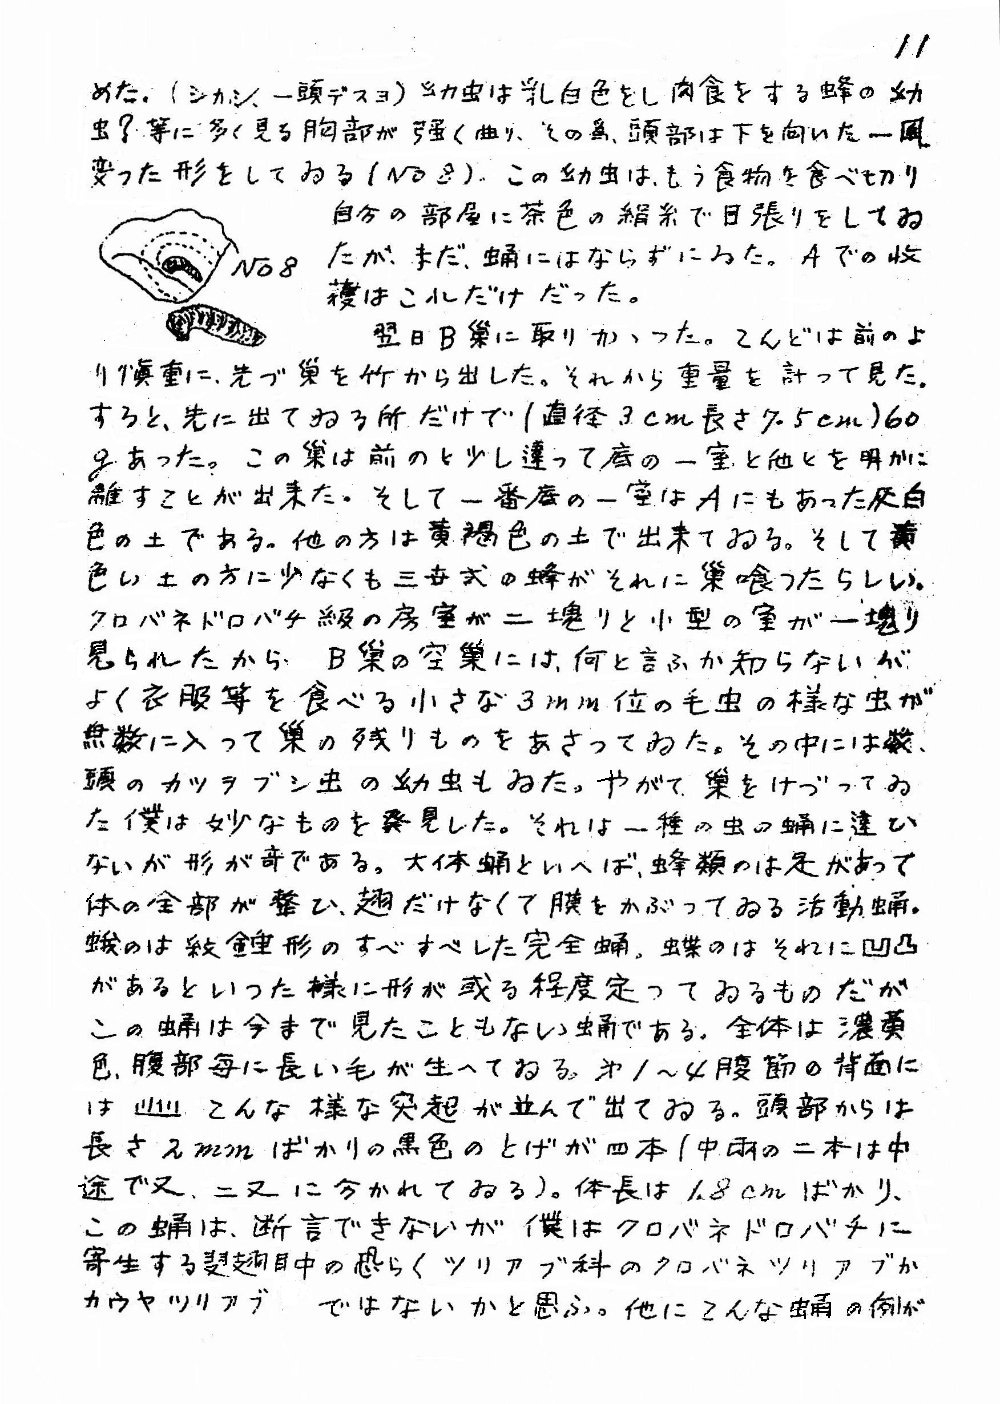 11
めた。(シカシ、一頭デスヨ)幼虫は乳白色をし肉食をする蜂の幼
虫?等に多く見る胸部が強く曲り、その為、頭部は下を向いた一風
変った形をしてゐる(No 8)。この幼虫は、もう食物を食べ切り
自分の部屋に茶色の絹糸で目張りをしてゐ
No 8
たが、まだ、蛹にはならずにゐた。Aでの收
穫はこれだけだった。
翌日B巣に取りかゝった。こんどは前のよ
り慎重に、先づ巣を竹から出した。それから重量を計って見た。
すると、先に出てゐる所だけで(直径3cm長さ7.5cm)60
gあった。この巣は前のと少し違って底の一室と他とを明かに
離すことが出来た。そして一番底の一室はAにもあった灰白
色の土である。他の方は黄褐色の土で出来てゐる。そして黄
色い土の方に少なくも三世代の蜂がそれに巣喰ったらしい。
クロバネドロバチ級の房室が二塊りと小型の室が一塊り
見られたから B巣の空巣には、何と言ふか知らないが
よく衣服等を食べる小さな3mm位の毛虫の様な虫が
無数に入って巣の残りものをあさってゐた。その中には
頭のカツヲブシ虫の幼虫もゐた。やがて、巣をけづってゐ
た僕は妙なものを発見した。それは一種の虫の蛹に違ひ
ないが形が奇である。大体蛹といへば、蜂類のは足があって
体の全部が整ひ、翅だけなくて膜をかぶってゐる活動蛹。
蛾のは紡錘形のすべすべした完全蛹。蝶のはそれに凹凸
があるといった様に形が或る程度定ってゐるものだが
この蛹は今まで見たこともない蛹である。全体は濃黄
色、腹部毎に長い毛が生へてゐる。第1〜4腹節の背面に
は こんな様な突起が並んで出てゐる。頭部からは
長さ2mmばかりの黒色のとげが四本(中両の二本は中
途で又、二又に分かれてゐる)。体長は1.8cmばかり、
この蛹は、断言できないが僕はクロバネドロバチに
寄生する双翅目中の恐らくツリアブ科のクロバネツリアブか
カウヤツリアブ ではないかと思ふ。他にこんな蛹の例が